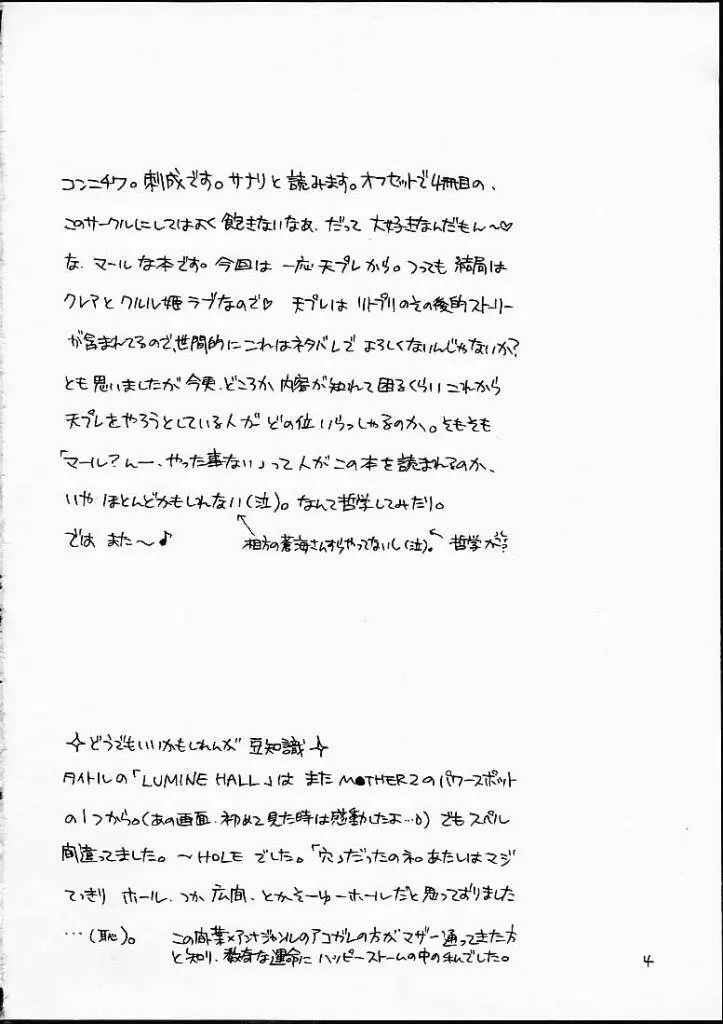 コンニチワ。刺成です。サナリと読みます。オフセットで4冊目の、
このサークルにしてはよく飽きないなあ、だって大好きなんだもん〜♡
な、マールな本です。今回は一応天プレから。つっても結局は
クレアとクルル姫ラブなので♡ 天プレはリトプリのその後的ストーリー
が含まれてるので、世間的にこれはネタバレでよろしくないんじゃないか?
とも思いましたが今更、どころか内容が知れて困るくらいこれから
天プレをやろうとしている人がどの位いらっしゃるのか。そもそも
「マール?んー、やった事ない」って人がこの本を読まれるのか、
いやほとんどかもしれない(泣)。なんて哲学してみたり。
ではまた〜♪
相方の蒼海さんすらやってないし(泣)。
哲学か?
✧どうでもいいかもしれんが 豆知識✧
タイトルの「LUMINE HALL」はまたMOTHER2のパワースポット
の1つから。(あの画面、初めて見た時は感動したよ…) でもスペル
間違ってました。〜HOLEでした。「穴」だったのネ。あたしはマジ
てっきり ホール、つか広間、とかそーゆーホールだと思っておりました
…(恥)。
この間葉×アンナジャンルのアコガレの方がマザー通ってきた方
と知り、数奇な運命にハッピーストームの中の私でした。
4